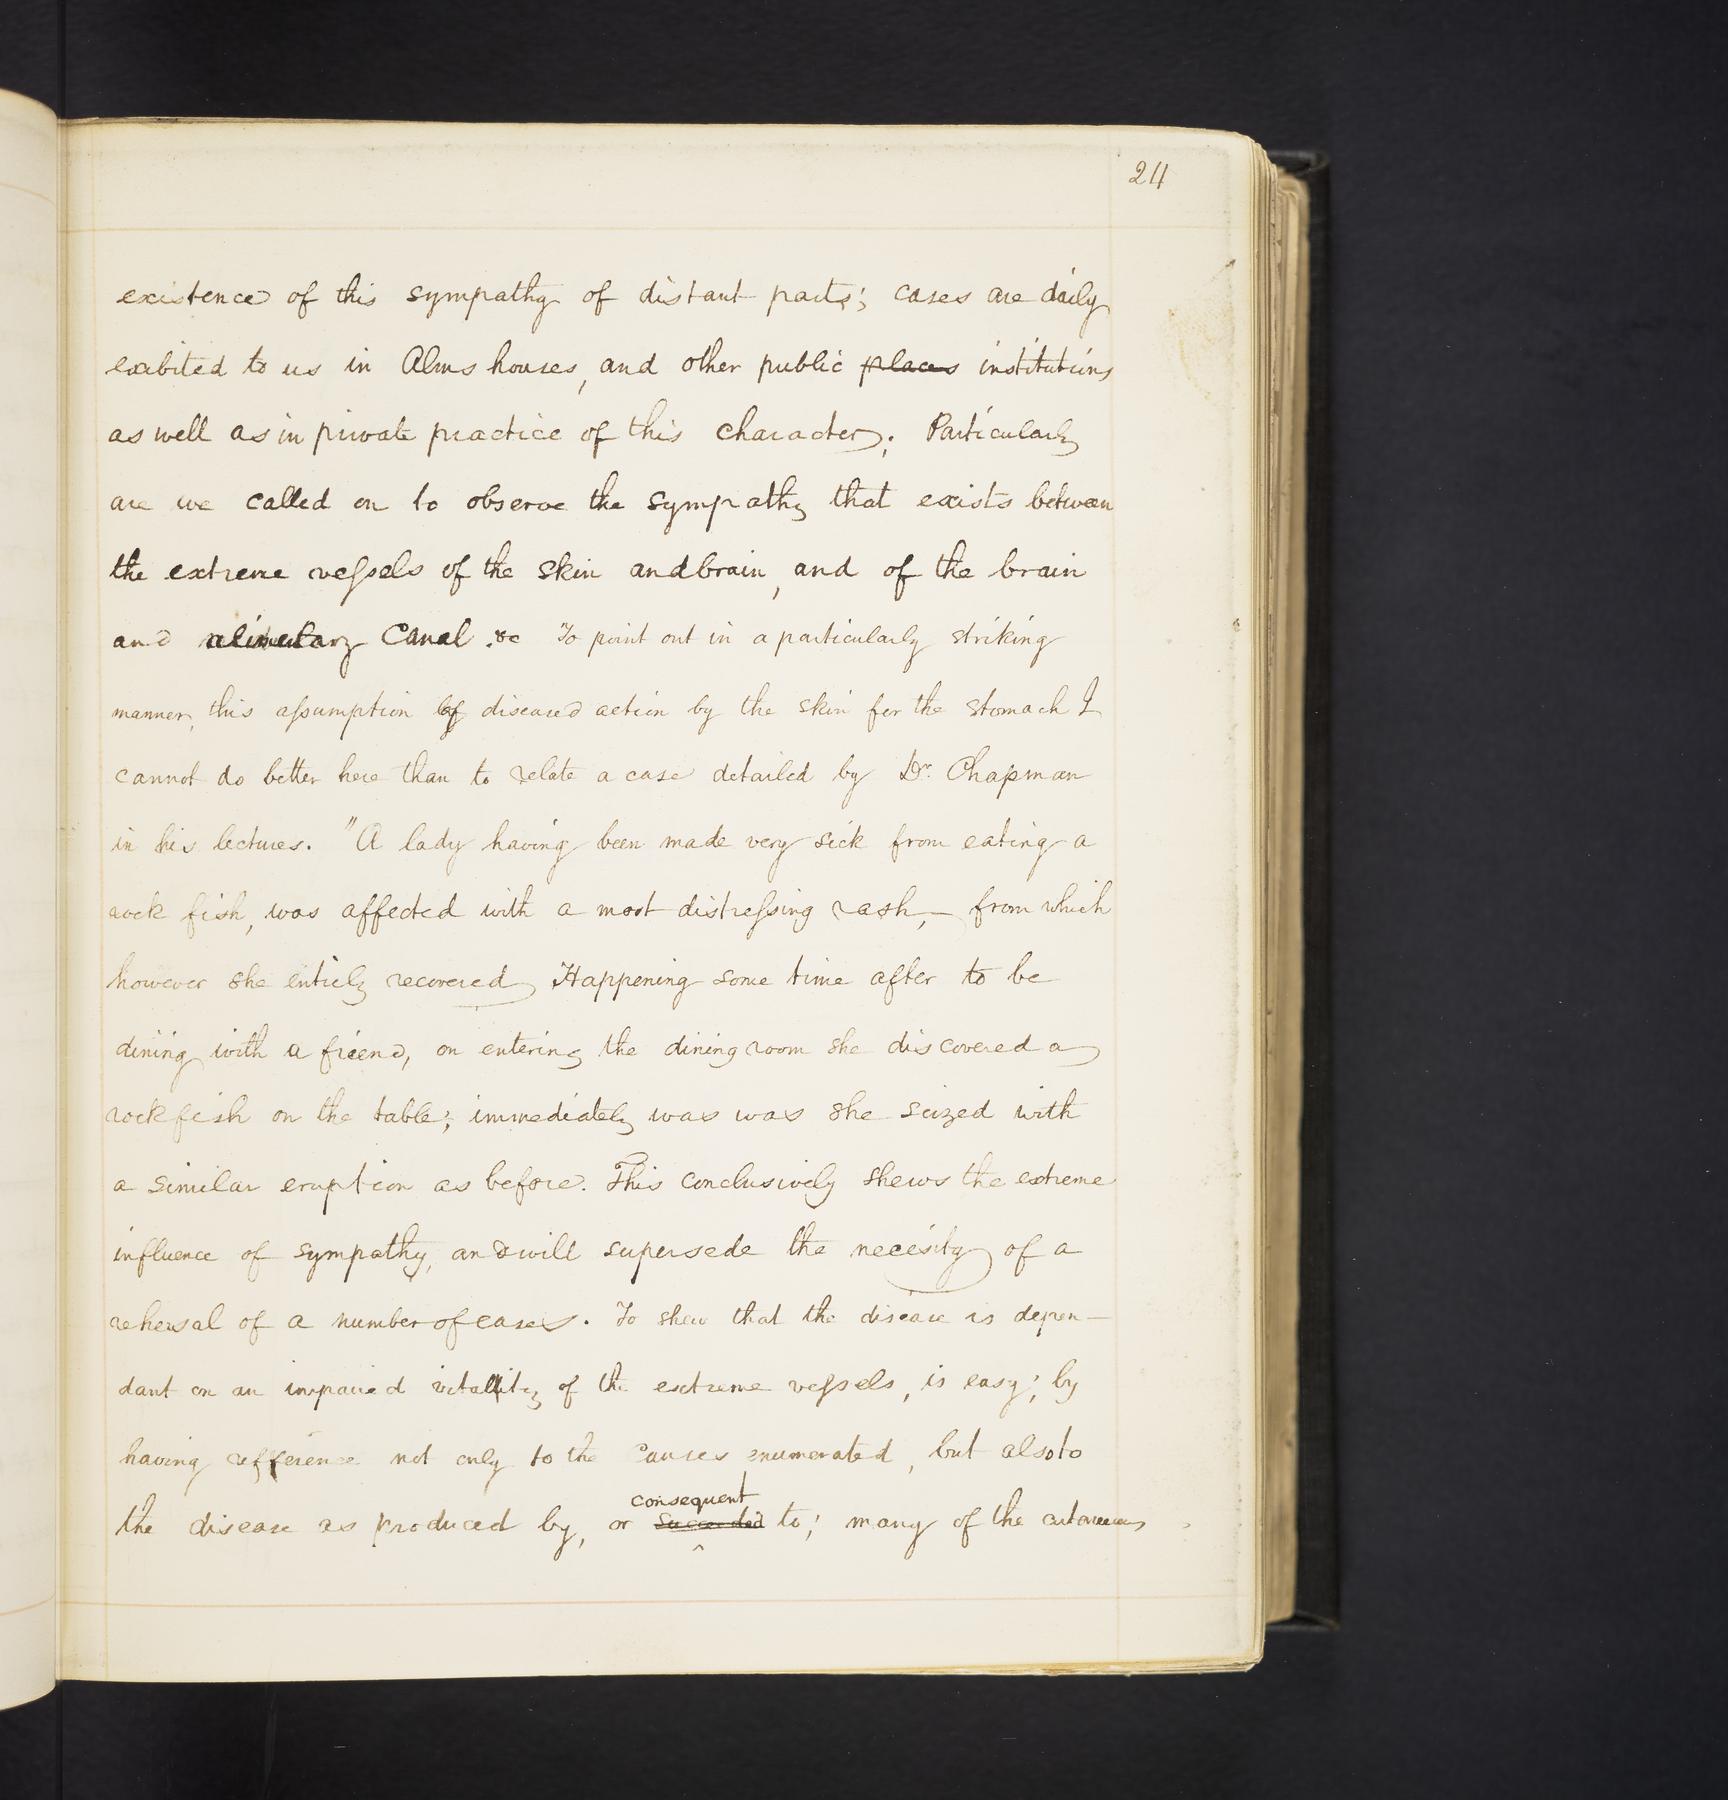 24
existence of this sympathy of distant parts; cases are daily
exibited to us in Alms houses, and other public places institutions
as well as in private practice of this character; Particularly
are we called on to observe the sympathy that exists between
the extreme vessels of the skin and brain, and of the brain
and alimentary Canal &c To point out in a particularly striking
manner, this assumption of diseased action by the skin for the stomach I
cannot do better here than to relate a case detailed by Dr. Chapman
in his lectures. "A lady having been made very sick from eating a
rock fish, was affected with a most distressing rash,— from which
however she entirely recovered Happening some time after to be
dining with a friend, on entering the dining room she discovered a
rock fish on the table; immediately was was she seized with
a similar eruption as before. This conclusively shews the extreme
influence of sympathy, and will supersede the necesity of a
rehersal of a number of cases. To shew that the disease is depen-
dant on an impaired vitallity of the extreme vessels, is easy; by
having refference not only to the causes enumerated, but also to
consequent
the disease as produced by, or Succeeded to; many of the cutaneous